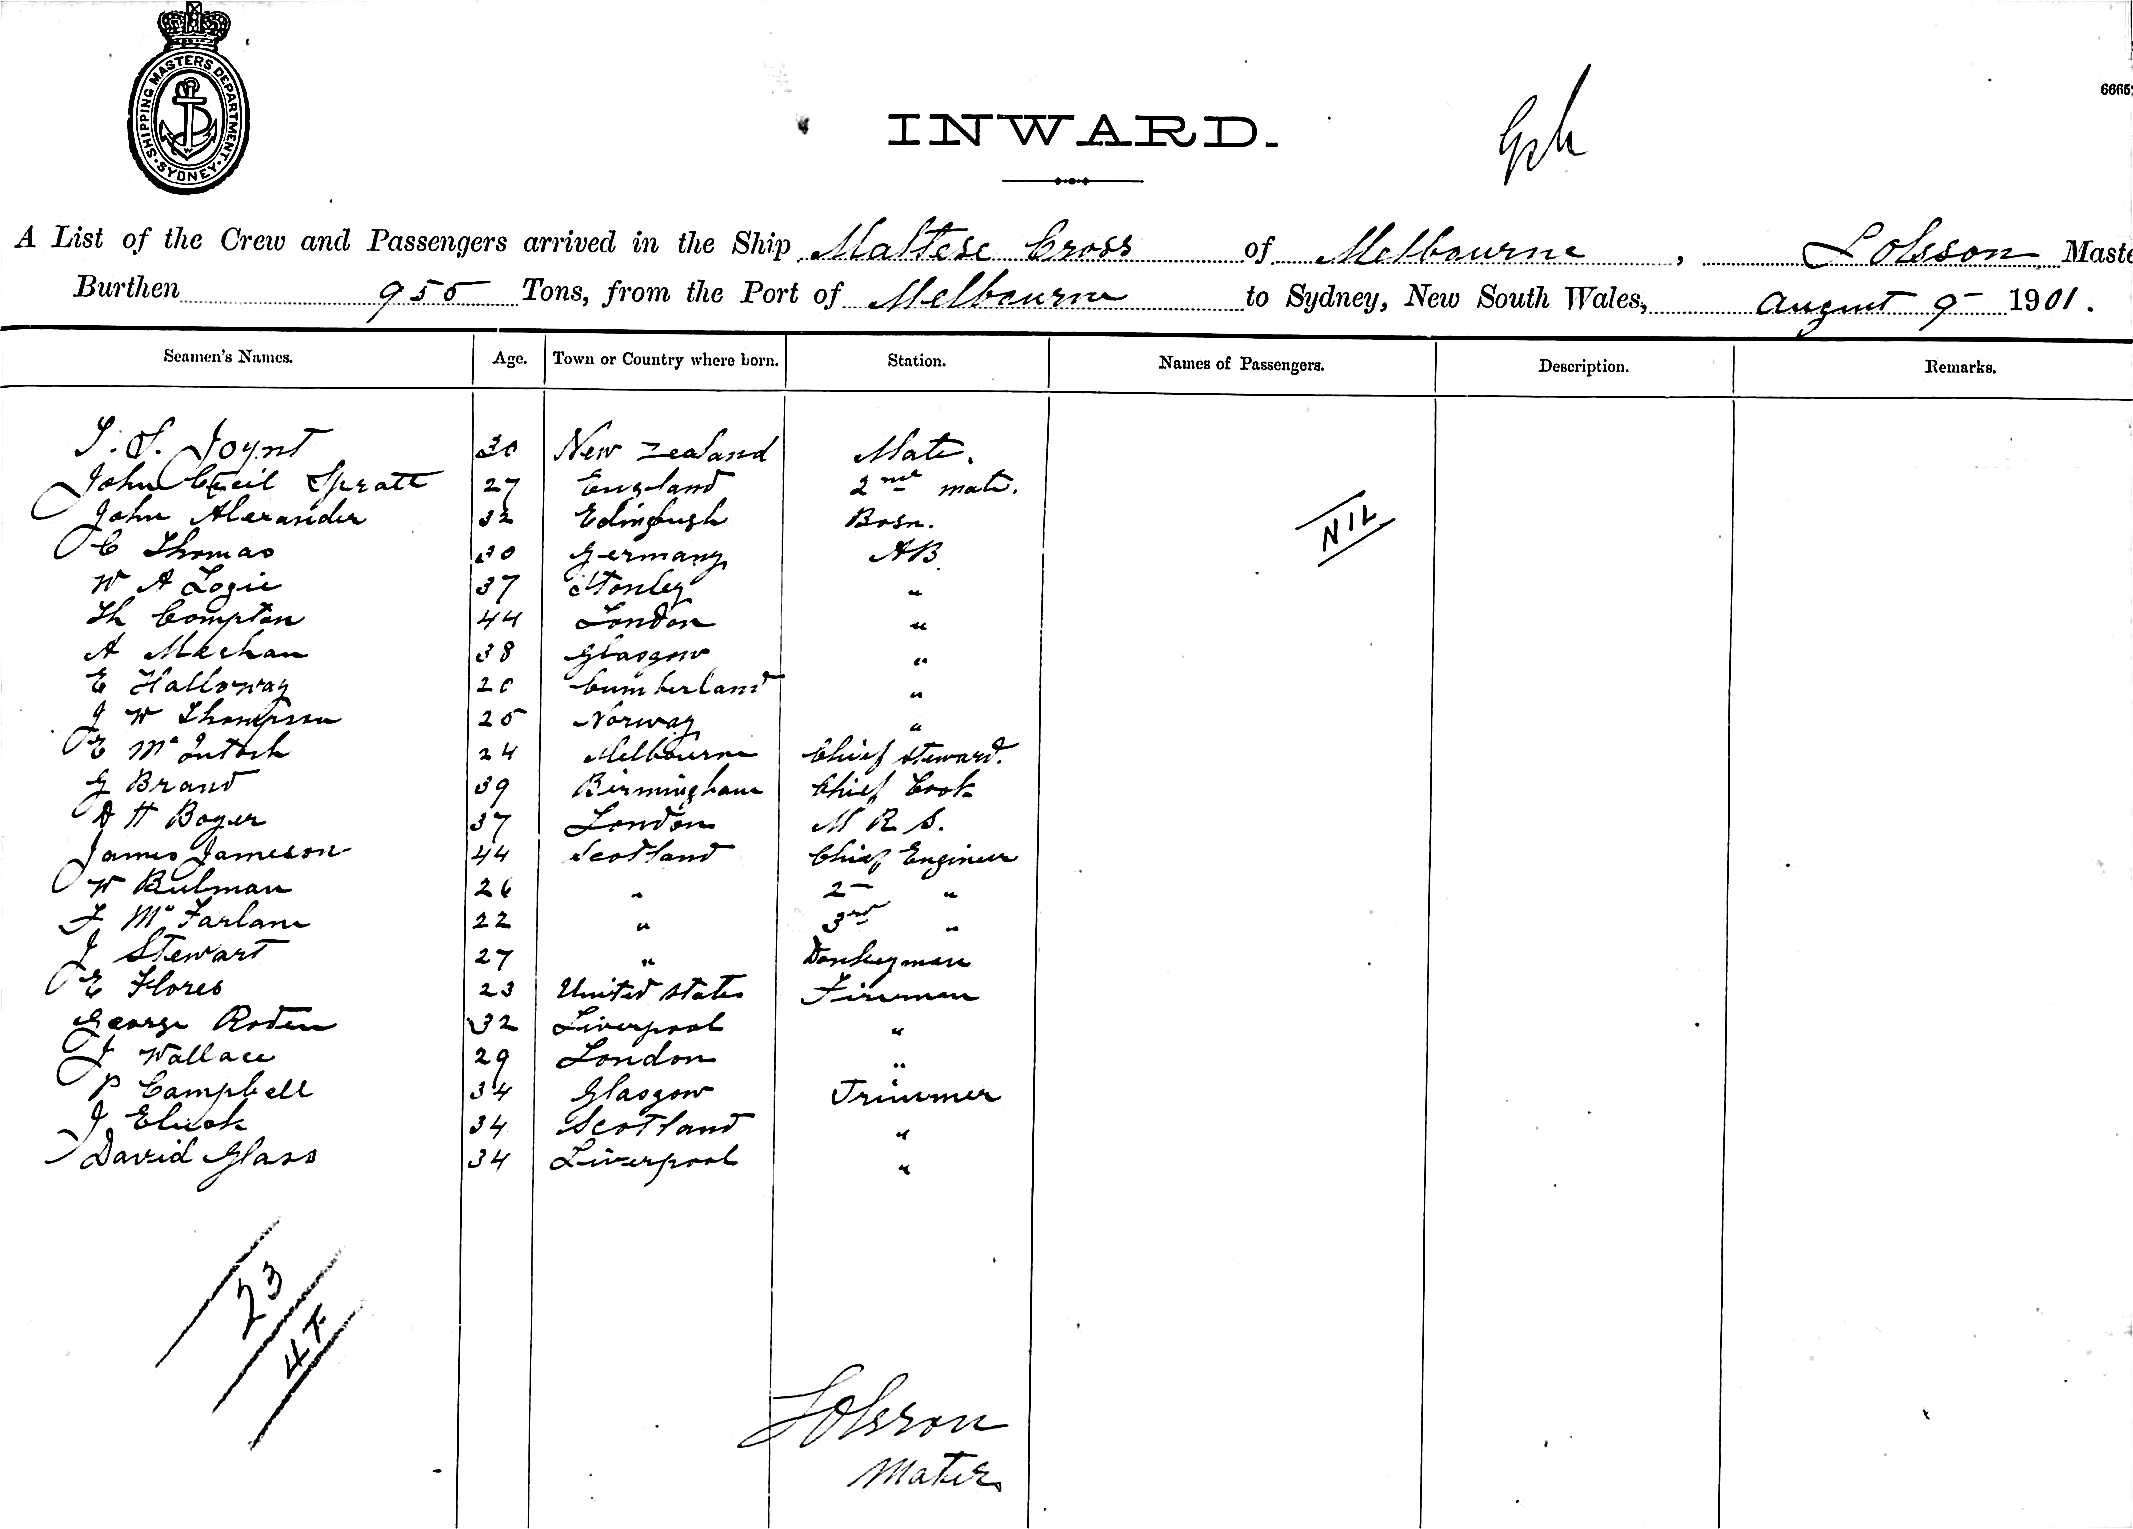 SHIPPING MASTERS DEPARTMENT
SYDNEY
INWARD.
A List of the Crew and Passengers arrived in the Ship Maltese Cross of Melbourne, L Olsson Maste
Burthen 955 Tons, from the Port of Melbourne to Sydney, New South Wales, August 9 1901.
Seamen's Names. Age. Town or Country where born. Station. Names of Passengers. Description. Remarks.
Joynt 30 New Zealand Mate.
John Cecil Spratt 27 England 2nd mate.
John Alexander 32 Edinburgh Bosn.
C Thomas 30 Germany AB
W A Logie 37 Stanley "
Th Compton 44 London "
A Meehan 38 Glasgow "
E Halloway 20 Cumberland "
J W Thompson 25 Norway "
E McIntosh 24 Melbourne Chief Steward.
G Brand 39 Birmingham Chief Cook
A H Boyer 37 London M R S.
James Jameson 44 Scotland Chief Engineer
W Bulman 26 " 2 "
F McFarlane 22 " 3rd "
J Stewart 27 " Donkeyman
E Flores 23 United States Fireman
George Roden 32 Liverpool "
J Wallace 29 London "
P Campbell 34 Glasgow Trimmer
J 34 Scotland "
David Glass 34 Liverpool "
NIL
23
L Olsson